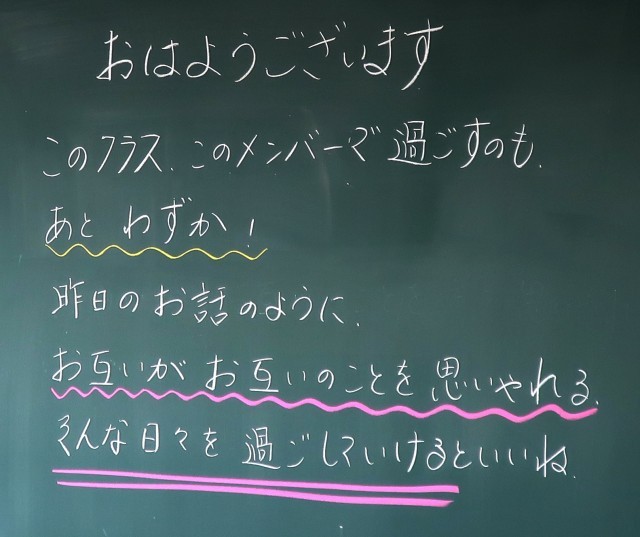 おはようございます
このクラス、このメンバーで過ごすのも、
あと わずか!
昨日のお話のように、
お互いが お互いのことを 思いやれる、
そんな日々を 過ごしていけるといいね。